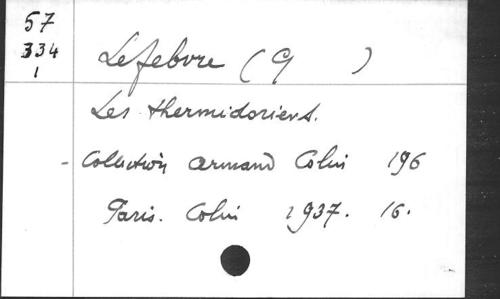 57
334
1
Lefebvre (G )
Les thermidoriens.
- Collection Armand Colin 196
Paris. Colin 1937. 16.